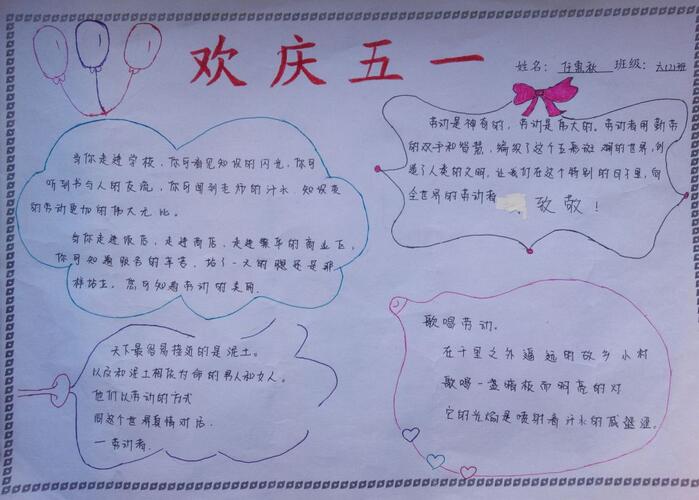 欢庆五一
姓名：任惠秋 班级：六(2)班
当你走进学校，你可看见知识的闪光，你可
听到书与人的交流，你可闻到老师的汗水，知识类
的劳动更加的伟大无比。
当你走进饭店，走进商店，走进繁华的商业区，
你可知道服务的辛苦，站了一天的腿还是那
样站立，您可知道劳动的美丽．
劳动是神奇的，劳动是伟大的。劳动者用勤劳
的双手和智慧，编织了这个五彩斑斓的世界，创
造了人类的文明。让我们在这个特别的日子里，向
全世界的劳动者 致敬！
天下最容易接近的是泥土。
以及和泥土相依为命的男人和女人。
他们以劳动的方式
同这个世界真情对话．
一劳动者．
歌唱劳动．
在千里之外遥远的故乡小村
歌唱一盏嘴板而明亮的灯
它的光焰是喷射着汗水的咸